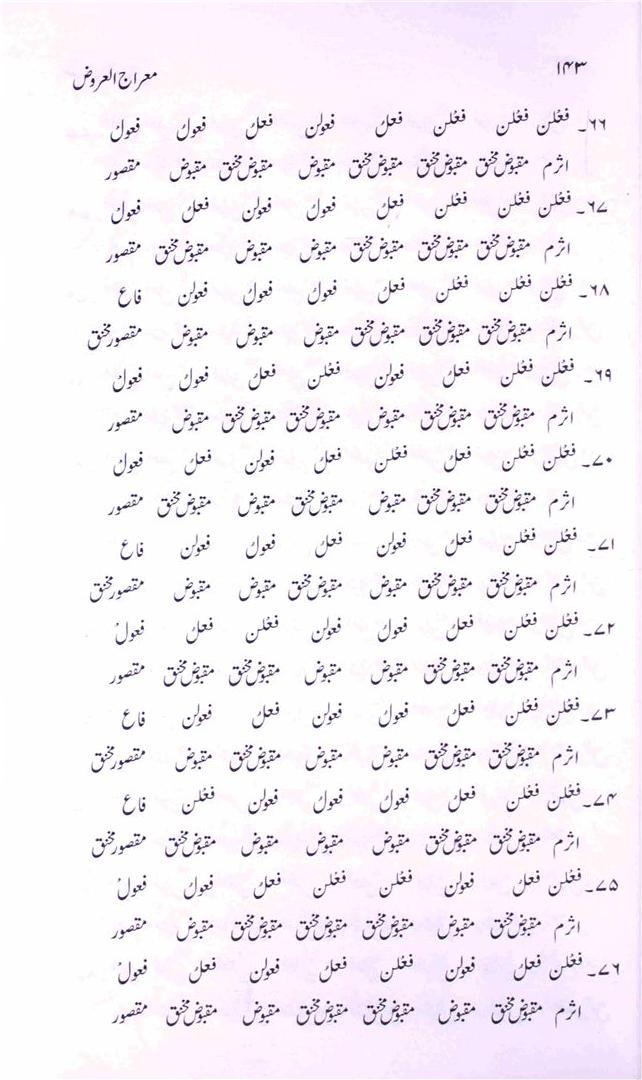 ۱۴۳
معراج العروض
۶۶۔ فعْلن فعْلن فعْلن فعلُ فعولن فعلُ فعولُ فعولُ
اثرم مقبوض مخنق مقبوض مخنق مقبوض مخنق مقبوض مقبوض مخنق مقبوض مقصور
۶۷۔ فعْلن فعْلن فعْلن فعلُ فعولُ فعولن فعلُ فعولُ
اثرم مقبوض مخنق مقبوض مخنق مقبوض مخنق مقبوض مقبوض مقبوض مخنق مقصور
۶۸۔ فعْلن فعْلن فعْلن فعلُ فعولُ فعولُ فعولن فاع
اثرم مقبوض مخنق مقبوض مخنق مقبوض مخنق مقبوض مقبوض مقبوض مقصور مخنق
۶۹۔ فعْلن فعْلن فعلُ فعولن فعْلن فعلُ فعولُ فعولُ
اثرم مقبوض مخنق مقبوض مخنق مقبوض مقبوض مخنق مقبوض مخنق مقبوض مقصور
۷۰۔ فعْلن فعْلن فعلُ فعْلن فعلُ فعولن فعلُ فعولُ
اثرم مقبوض مخنق مقبوض مخنق مقبوض مقبوض مخنق مقبوض مقبوض مخنق مقصور
۷۱۔ فعْلن فعْلن فعلُ فعولن فعلُ فعولُ فعولن فاع
اثرم مقبوض مخنق مقبوض مخنق مقبوض مقبوض مخنق مقبوض مقبوض مقصور مخنق
۷۲۔ فعْلن فعْلن فعلُ فعولُ فعولن فعْلن فعلُ فعولُ
اثرم مقبوض مخنق مقبوض مخنق مقبوض مقبوض مقبوض مخنق مقبوض مخنق مقصور
۷۳۔ فعْلن فعْلن فعلُ فعولُ فعولن فعلُ فعولن فاع
اثرم مقبوض مخنق مقبوض مخنق مقبوض مقبوض مقبوض مخنق مقبوض مقصور مخنق
۷۴۔ فعْلن فعْلن فعلُ فعولُ فعولُ فعولن فعْلن فاع
اثرم مقبوض مخنق مقبوض مخنق مقبوض مقبوض مقبوض مقبوض مخنق مقصور مخنق
۷۵۔ فعْلن فعلُ فعولن فعْلن فعْلن فعلُ فعولُ فعولُ
اثرم مقبوض مخنق مقبوض مقبوض مخنق مقبوض مخنق مقبوض مخنق مقبوض مقصور
۷۶۔ فعْلن فعلُ فعولن فعْلن فعلُ فعولن فعلُ فعولُ
اثرم مقبوض مخنق مقبوض مقبوض مخنق مقبوض مخنق مقبوض مقبوض مخنق مقصور